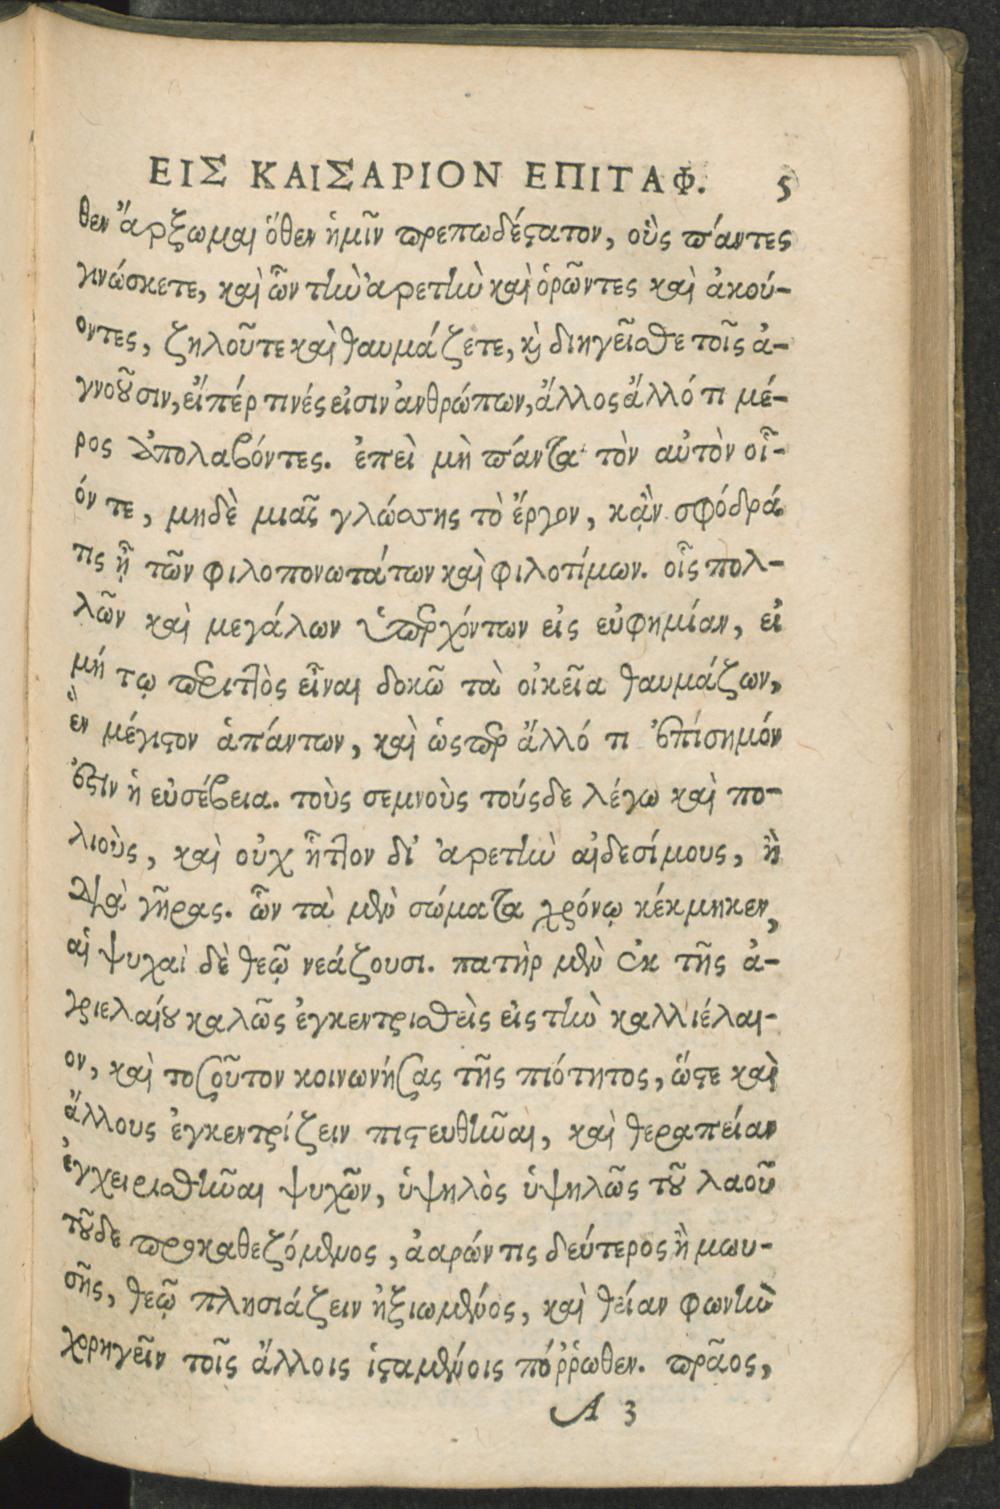 ΕΙΣ ΚΑΙΣΑΡΙΟΝ ΕΠΙΤΑΦ. 5
θεν ἄρξωμαι ὅθεν ἡμῖν πρεπωδέστατον, οὓς πάντες
γινώσκετε, καὶ ὧν τὴν ἀρετὴν καὶ ὁρῶντες καὶ ἀκού-
οντες, ζηλοῦτε καὶ θαυμάζετε, καὶ διηγεῖσθε τοῖς ἀ-
γνοοῦσιν, εἴπέρ τινές εἰσιν ἀνθρώπων, ἄλλος ἄλλό τι μέ-
ρος ἀπολαβόντες. ἐπεὶ μὴ πάντα τὸν αὐτὸν οἷ-
όν τε, μηδὲ μιᾶς γλώσσης τὸ ἔργον, κᾂν σφόδρά
τις ᾖ τῶν φιλοπονωτάτων καὶ φιλοτίμων. οἷς πολ-
λῶν καὶ μεγάλων ὑπαρχόντων εἰς εὐφημίαν, εἰ
μή τῳ περιττὸς εἶναι δοκῶ τὰ οἰκεῖα θαυμάζων,
ἓν μέγιστον ἁπάντων, καὶ ὥσπερ ἄλλό τι ἐπίσημόν
ἐστιν ἡ εὐσέβεια. τοὺς σεμνοὺς τούςδε λέγω καὶ πο-
λιοὺς, καὶ οὐχ ἧττον δι' ἀρετὴν αἰδεσίμους, ἢ
διὰ γῆρας. ὧν τὰ μὲν σώματα χρόνῳ κέκμηκεν,
αἱ ψυχαὶ δὲ θεῷ νεάζουσι. πατὴρ μὲν ἐκ τῆς ἀ-
γριελαίου καλῶς ἐγκεντρισθεὶς εἰς τὴν καλλιέλαι-
ον, καὶ τοσοῦτον κοινωνήσας τῆς πιότητος, ὥστε καὶ
ἄλλους ἐγκεντρίζειν πιστευθῆναι, καὶ θεραπείαν
ἐγχειρισθῆναι ψυχῶν, ὑψηλὸς ὑψηλῶς τοῦ λαοῦ
τοῦδε προκαθεζόμενος, ἀαρών τις δεύτερος ἢ μωυ-
σῆς, θεῷ πλησιάζειν ἠξιωμένος, καὶ θείαν φωνὴν
χορηγεῖν τοῖς ἄλλοις ἱσταμένοις πόῤῥωθεν. πρᾶος,
A 3